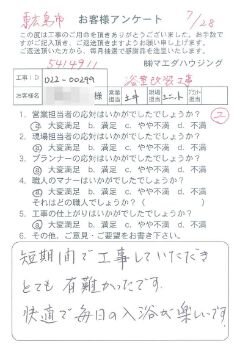 東広島市 お客様アンケート 7/28
この度は工事のご用命を頂きありがとうございました。お手数で
すがご記入頂き、ご返送頂きますようお願い申し上げます。
ご返送頂いた方から、毎月抽選で感謝荘を送呈いたします。
5414911 ㈱マエダハウジング
工事:ID 022-00299 浴室改修工事
お客様名 様 営業担当 土井 現調担当 ユニット
1. 営業担当者の応対はいかがでしたでしょうか? ②
ⓐ 大変満足 b. 満足 c. やや不満 d. 不満
2. 現場担当者の応対はいかがでしたでしょうか?
ⓐ 大変満足 b. 満足 c. やや不満 d. 不満
3. プランナーの応対はいかがでしたでしょうか?
a. 大変満足 b. 満足 c. やや不満 d. 不満
4. 職人のマナーはいかがでしたでしょうか?
ⓐ 大変満足 b. 満足 c. やや不満 d. 不満
それはどの職人でしょうか? ( )
5. 工事の仕上がりはいかがでしたでしょうか?
ⓐ 大変満足 b. 満足 c. やや不満 d. 不満
6. その他、ご意見・ご要望をお書き下さい。
短期間で工事していただき
とても有難かったです。
快適で毎日の入浴が楽しいです